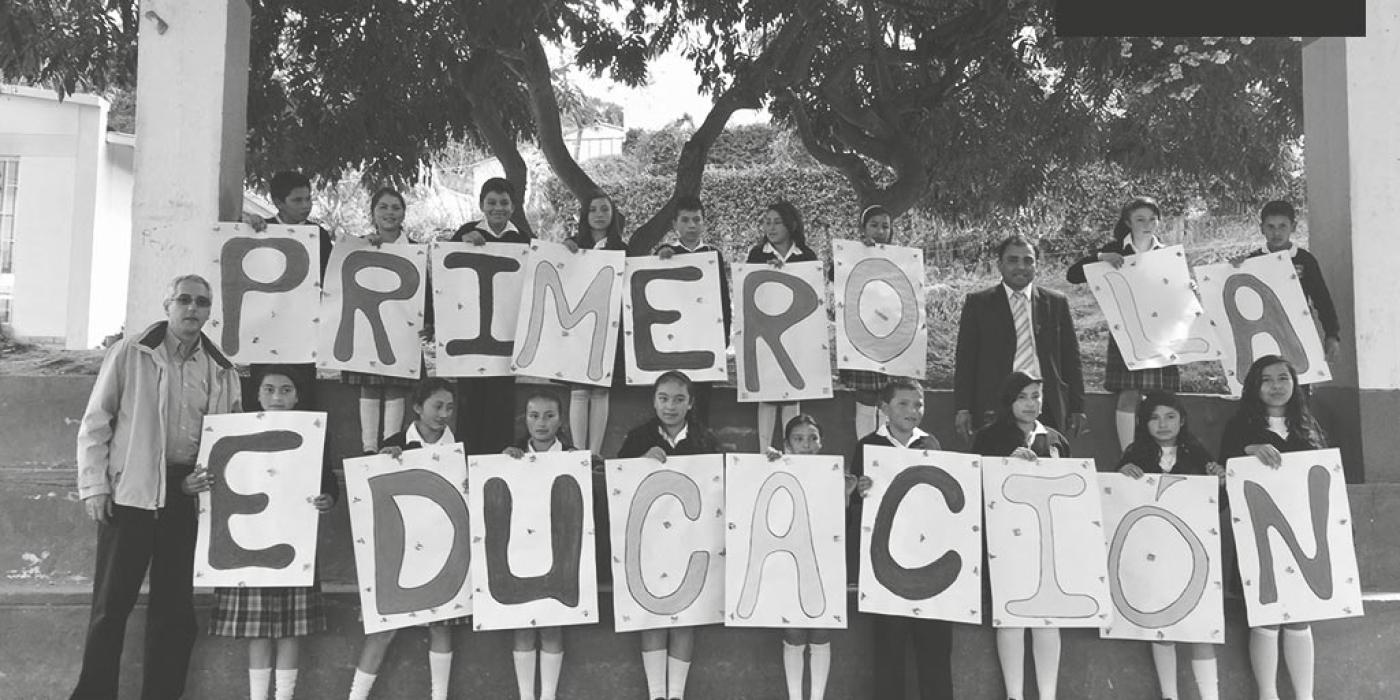 PRIMERO LA
EDUCACIÓN